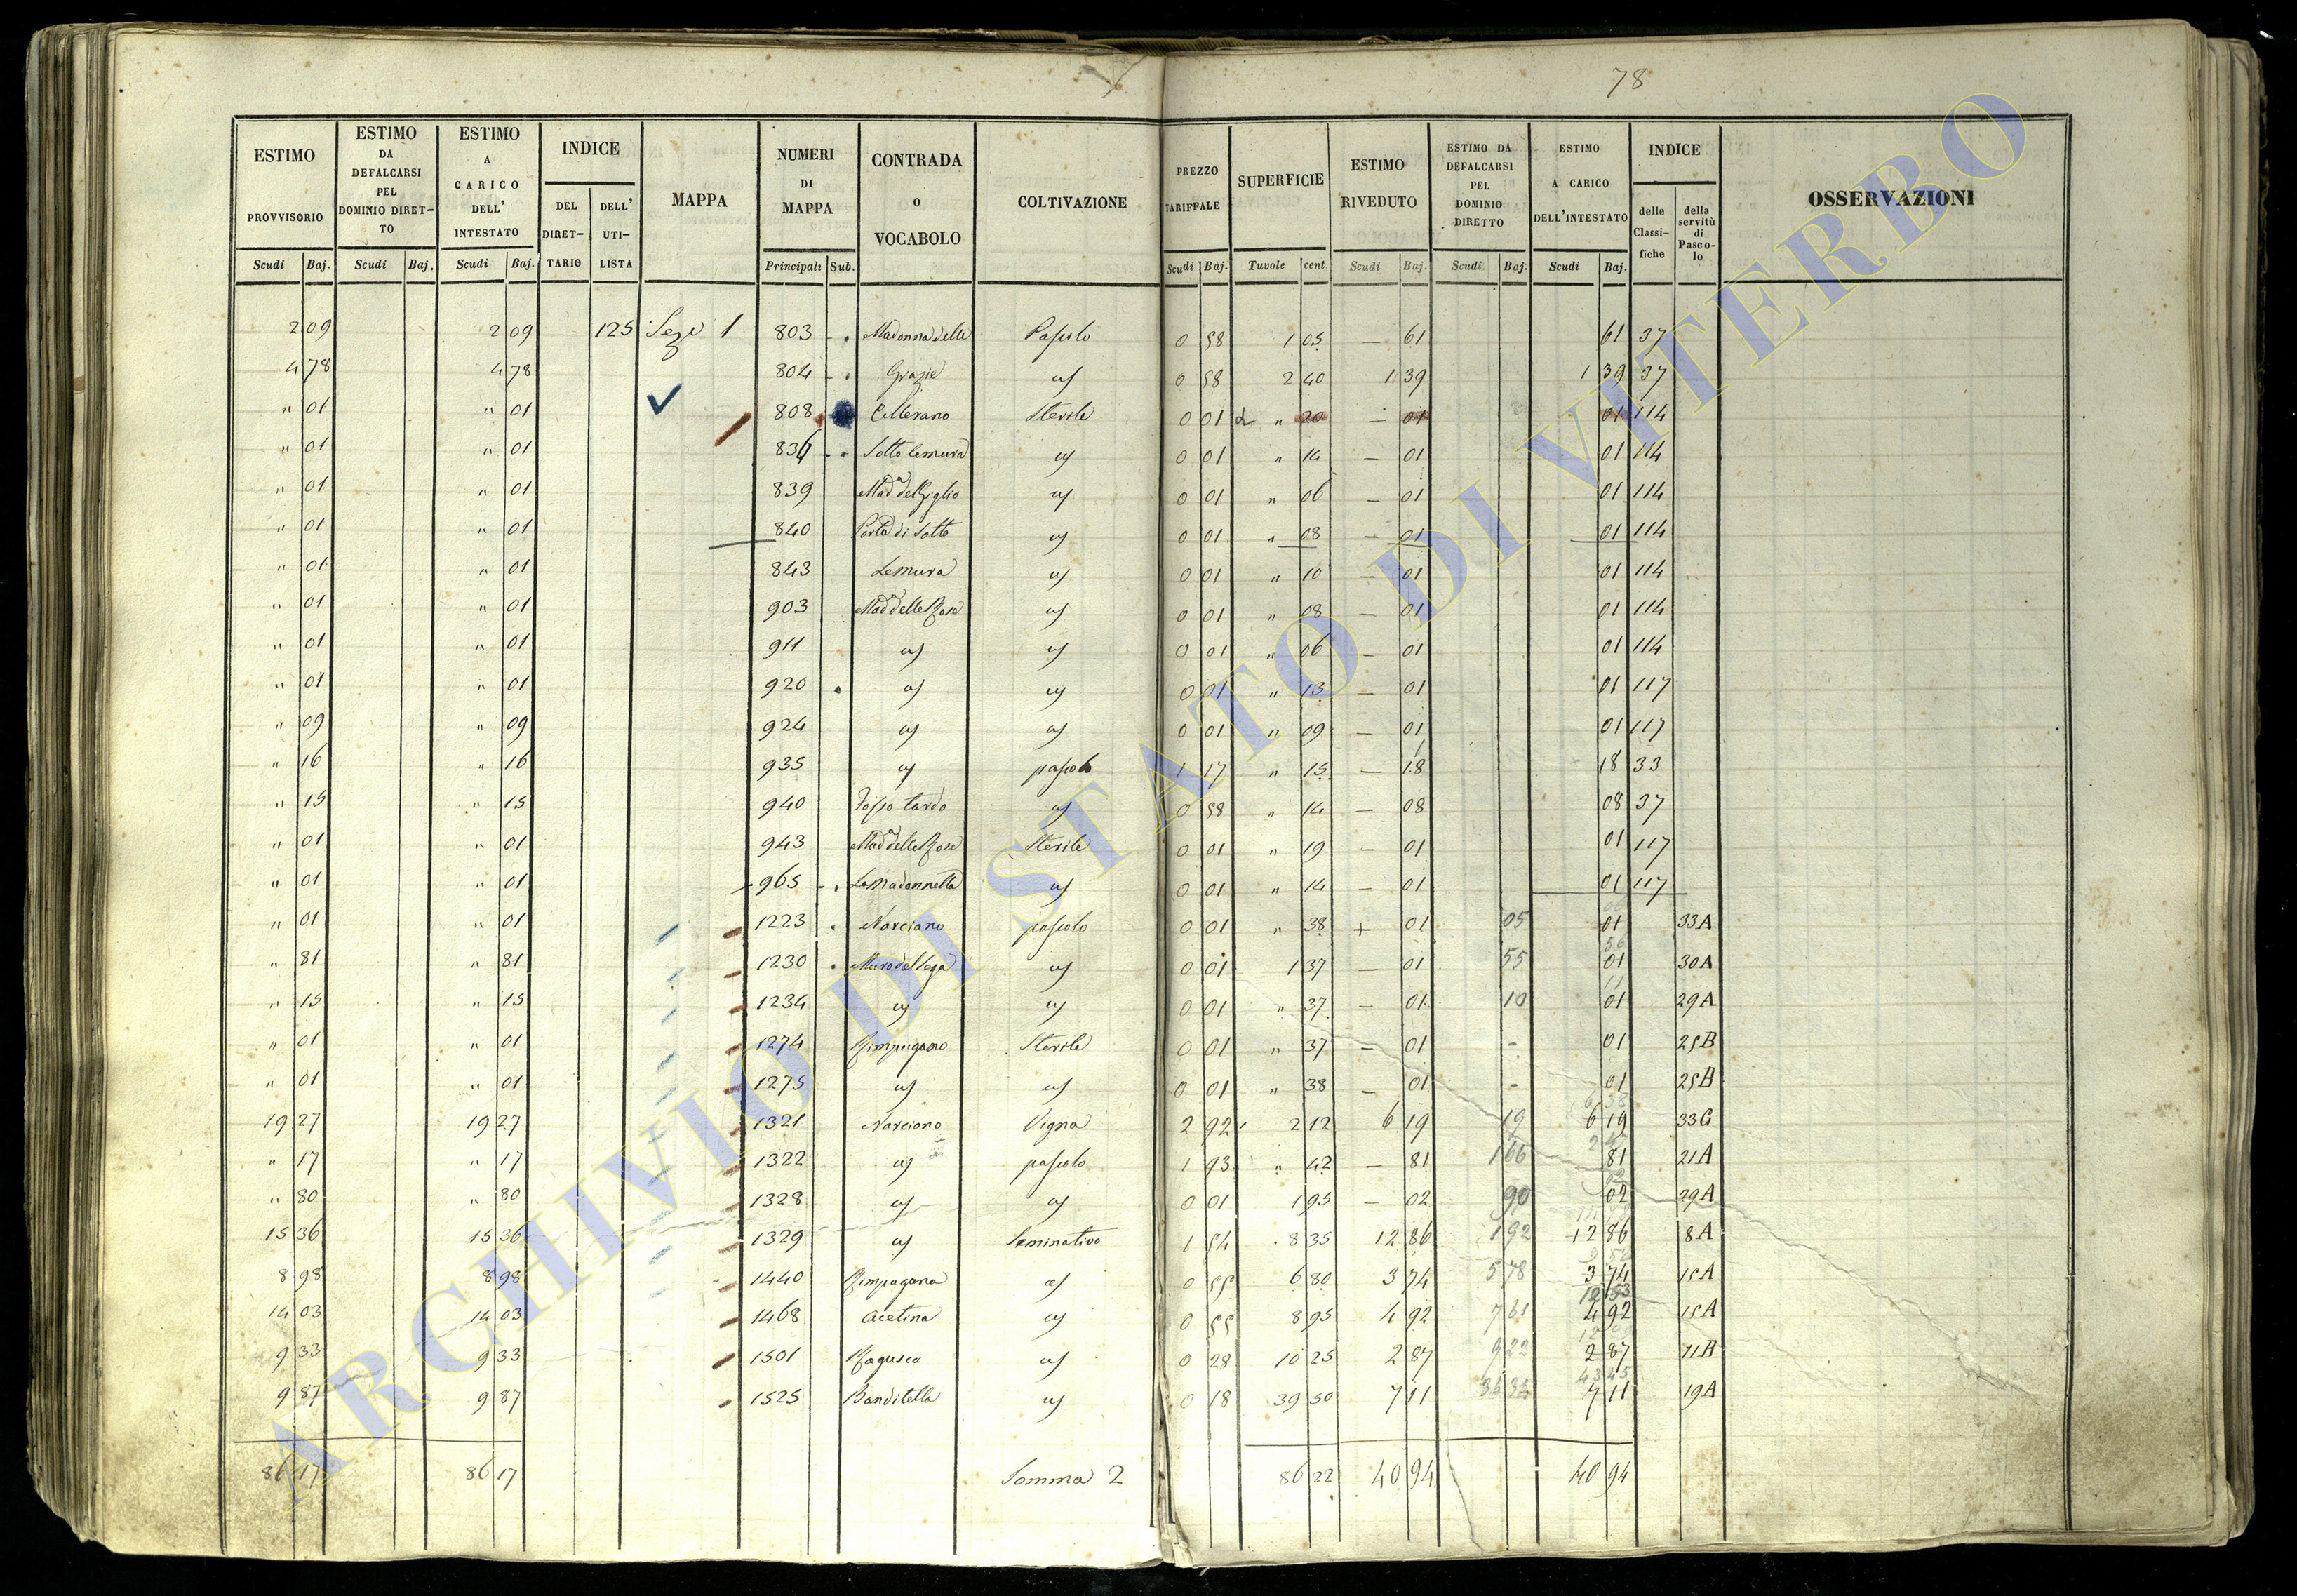 78
ESTIMO PROVVISORIO | ESTIMO DA DEFALCARSI PEL DOMINIO DIRETTO | ESTIMO A CARICO DELL' INTESTATO | INDICE | MAPPA | NUMERI DI MAPPA | CONTRADA o VOCABOLO | COLTIVAZIONE | PREZZO TARIFFALE | SUPERFICIE | ESTIMO RIVEDUTO | ESTIMO DA DEFALCARSI PEL DOMINIO DIRETTO | ESTIMO A CARICO DELL'INTESTATO | INDICE | OSSERVAZIONI
DEL DIRET-TARIO | DELL' UTI-LISTA | delle Classi-fiche | della servitù di Pasco-lo
Scudi Baj. | Scudi Baj. | Scudi Baj. | Principali Sub. | Scudi Baj. | Tavole cent. | Scudi Baj. | Scudi Baj. | Scudi Baj.
2 09 | 2 09 | 125 | 1 | 803 | Madonna delle | Pascolo | 0 58 | 1 05 | — 61 | 61 | 37
4 78 | 4 78 | 804 | Grazie | 0 58 | 2 40 | 1 39 | 1 39 | 37
" 01 | " 01 | 808 | Sterile | 0 01 | " 20 | — 01 | 01 | 114
" 01 | " 01 | Sotto le mura | 0 01 | " 14 | — 01 | 01 | 114
" 01 | " 01 | 839 | Mad.a del Giglio | 0 01 | " 06 | — 01 | 01 | 114
" 01 | " 01 | 840 | Porta di Sotto | 0 01 | " 08 | — 01 | 01 | 114
" 01 | " 01 | 843 | Le Mura | 0 01 | " 10 | — 01 | 01 | 114
" 01 | " 01 | 903 | Mad.a delle Rose | 0 01 | " 08 | — 01 | 01 | 114
" 01 | " 01 | 911 | 0 01 | " 06 | — 01 | 01 | 114
" 01 | " 01 | 920 | 0 01 | " 13 | — 01 | 01 | 117
" 09 | " 09 | 924 | 0 01 | " 09 | — 01 | 01 | 117
" 16 | " 16 | 935 | pascolo | 1 17 | " 15 | — 18 | 18 | 33
" 15 | " 15 | 940 | Fosso tardo | 0 58 | " 14 | — 08 | 08 | 37
" 01 | " 01 | 943 | Mad.a delle Rose | Sterile | 0 01 | " 19 | — 01 | 01 | 117
" 01 | " 01 | 965 | La Madonnella | 0 01 | " 14 | — 01 | 01 | 117
" 01 | " 01 | 1223 | Narciano | pascolo | 0 01 | " 38 | + 01 | 05 | 01 | 33A
" 81 | " 81 | 1230 | 0 01 | 1 37 | — 01 | 55 | 01 | 30A
" 15 | " 15 | 1234 | 0 01 | " 37 | — 01 | 10 | 01 | 29A
" 01 | " 01 | 1274 | Sterile | 0 01 | " 37 | — 01 | - | 01 | 25B
" 01 | " 01 | 1275 | 0 01 | " 38 | — 01 | - | 01 | 25B
19 27 | 19 27 | 1321 | Narciano | Vigna | 2 92 | 2 12 | 6 19 | 19 | 6 19 | 33G
" 17 | " 17 | 1322 | pascolo | 1 93 | " 42 | — 81 | 1 66 | 81 | 21A
" 80 | " 80 | 1328 | 0 01 | 1 95 | — 02 | 90 | 02 | 29A
15 36 | 15 36 | 1329 | Seminativo | 1 54 | 8 35 | 12 86 | 1 92 | 12 86 | 8A
8 98 | 8 98 | 1440 | 0 55 | 6 80 | 3 74 | 5 78 | 3 74 | 15A
14 03 | 14 03 | 1468 | Acetina | 0 55 | 8 95 | 4 92 | 7 61 | 4 92 | 15A
9 33 | 9 33 | 1501 | Ragusco | 0 28 | 10 25 | 2 87 | 9 22 | 2 87 | 11B
9 87 | 9 87 | 1525 | Banditella | 0 18 | 39 50 | 7 11 | 7 11 | 19A
86 17 | 86 17 | Somma 2 | 86 22 | 40 94 | 40 94
ARCHIVIO DI STATO DI VITERBO